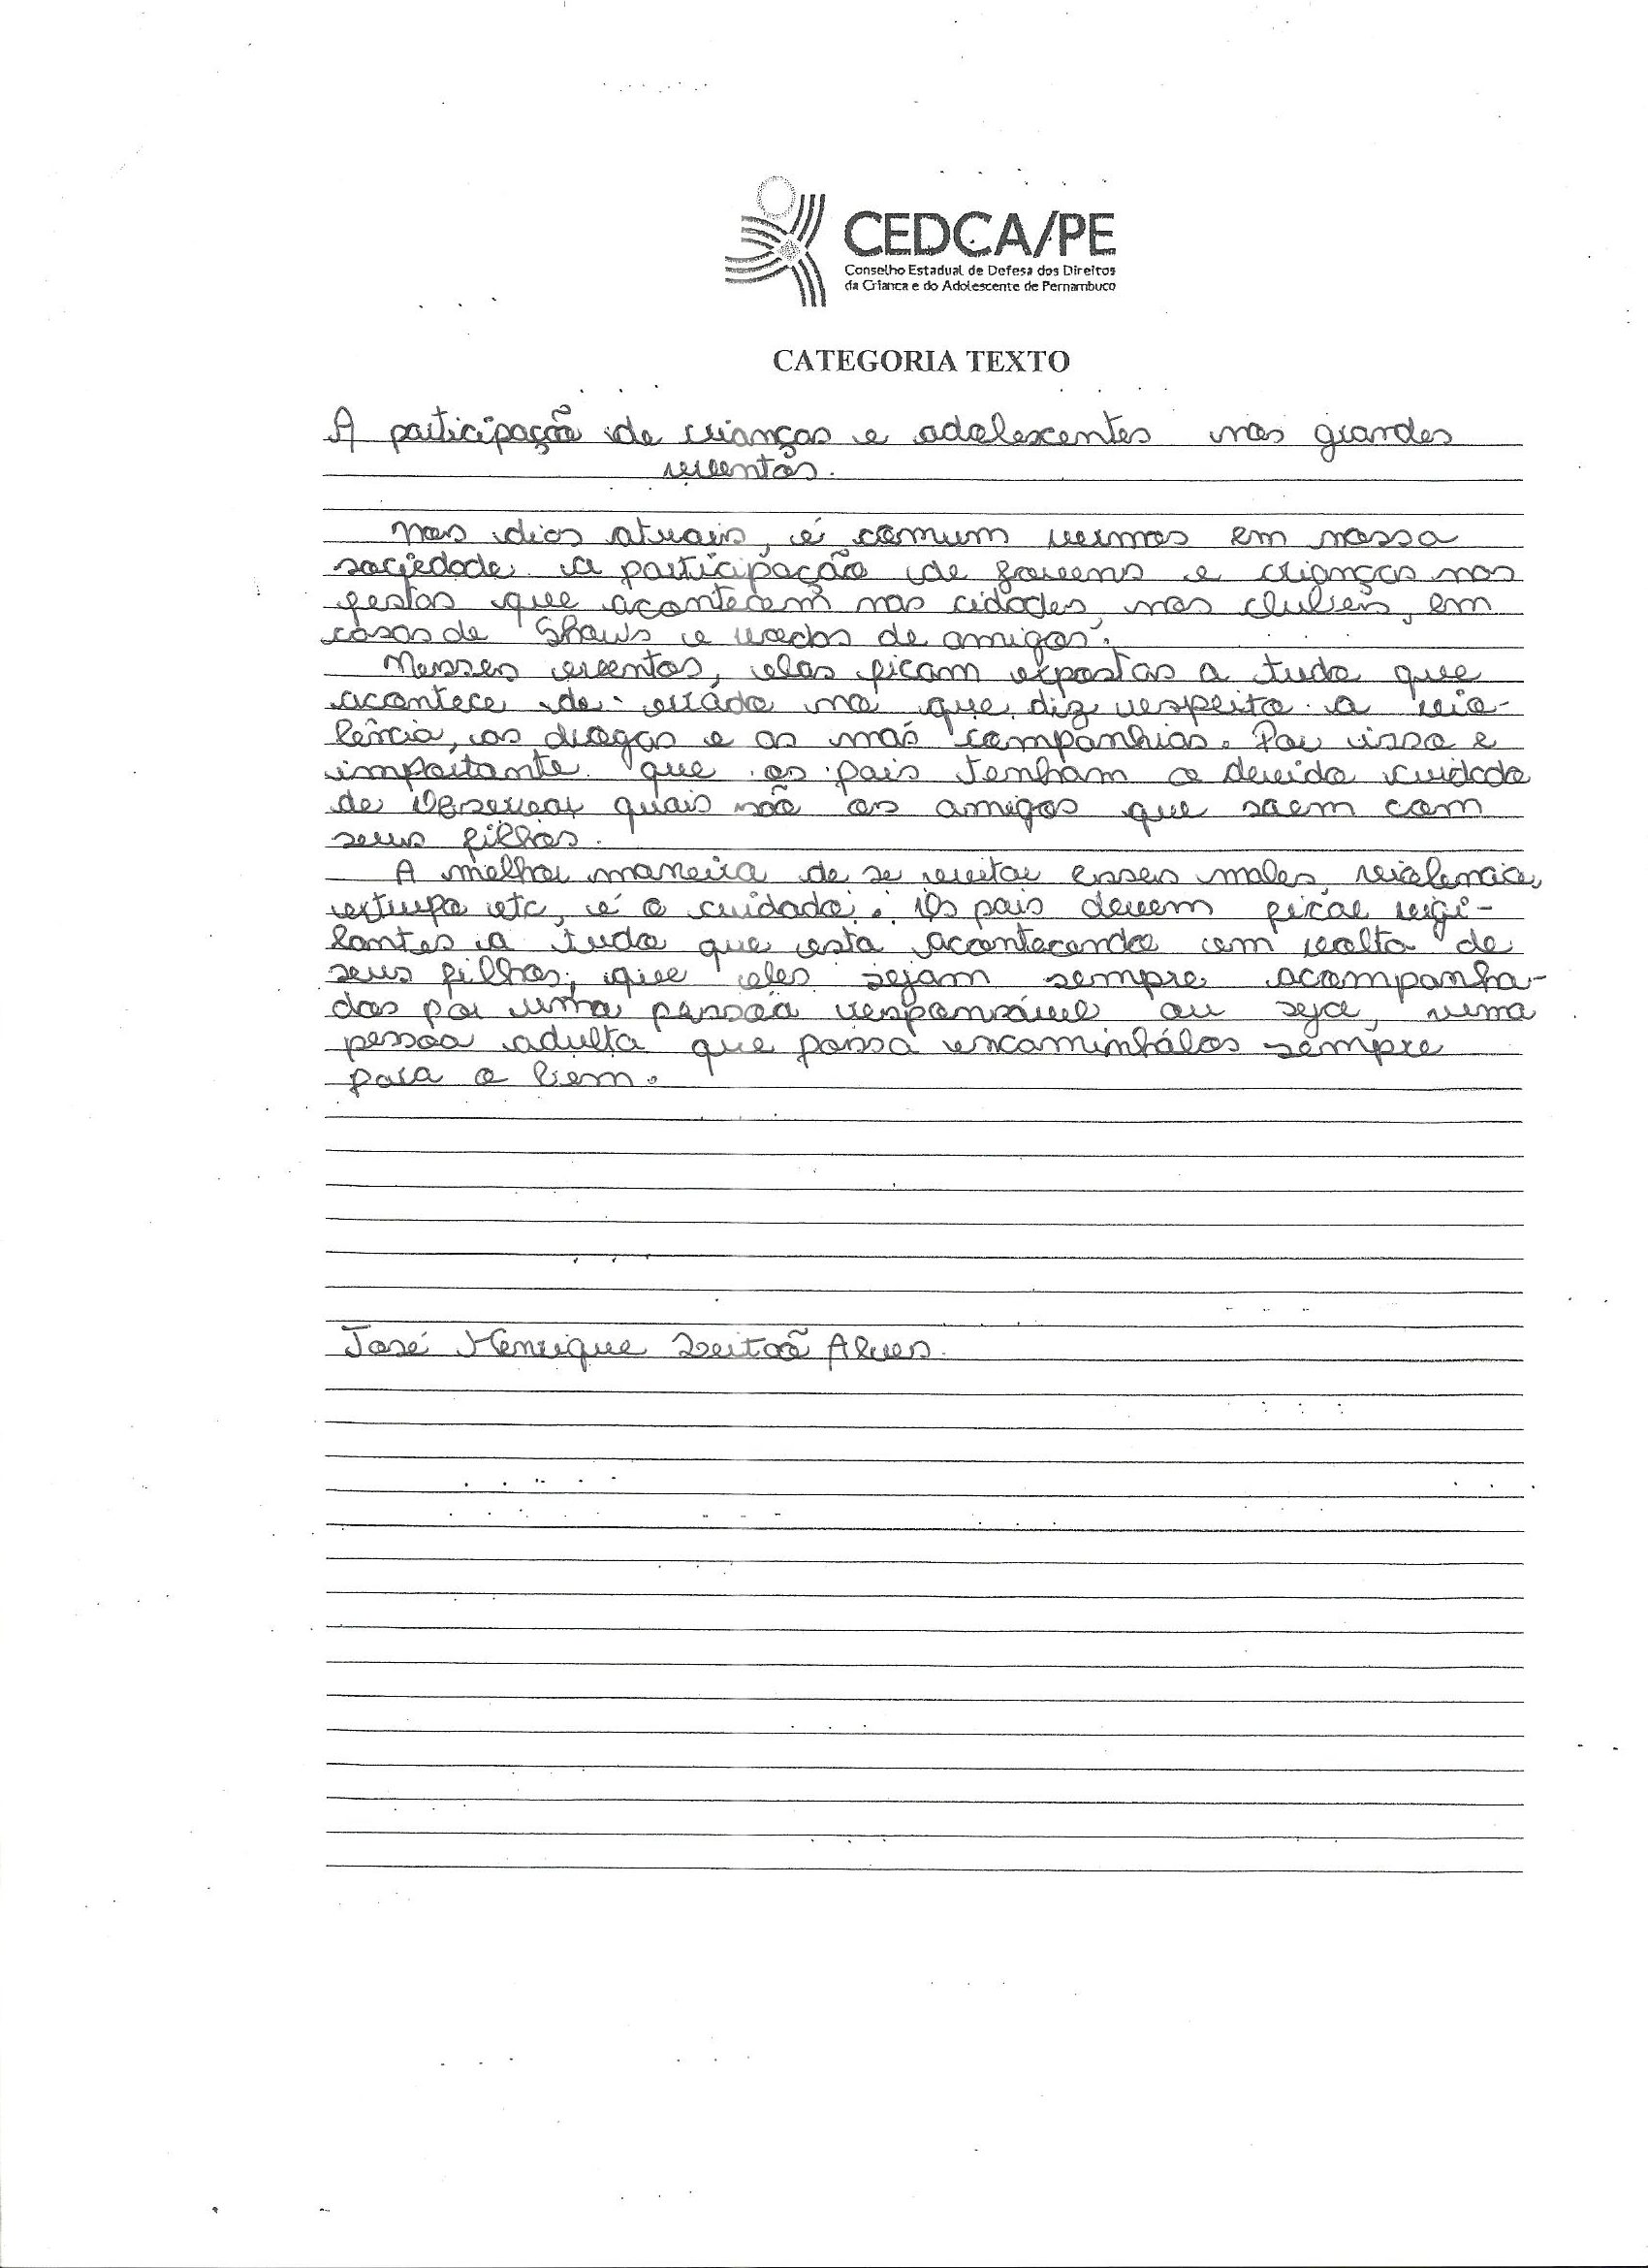 CEDCA/PE
Conselho Estadual de Defesa dos Direitos
da Criança e do Adolescente de Pernambuco
CATEGORIA TEXTO
A participação de crianças e adolescentes nos grandes
eventos.
Nos dias atuais, é comum vermos em nossa
sociedade a participação de jovens e crianças nas
festas que acontecem nas cidades, nos clubes, em
casas de Shows e rodas de amigos.
Nesses eventos, elas ficam expostas a tudo que
acontece de errado no que diz respeito a vio-
lência, as drogas e as más companhias. Por isso e
importante que os pais tenham o devido cuidado
de Observar quais são os amigos que saem com
seus filhos.
A melhor maneira de se evitar esses males, violencia,
estupo etc, é o cuidado. Os pais devem ficar vigi-
lantes a tudo que esta acontecendo em volta de
seus filhos, que eles sejam sempre acompanha-
dos por uma pessoa responsável ou seja, uma
pessoa adulta que possa encaminhálos sempre
para o bem.
José Henrique Leitão Alves.